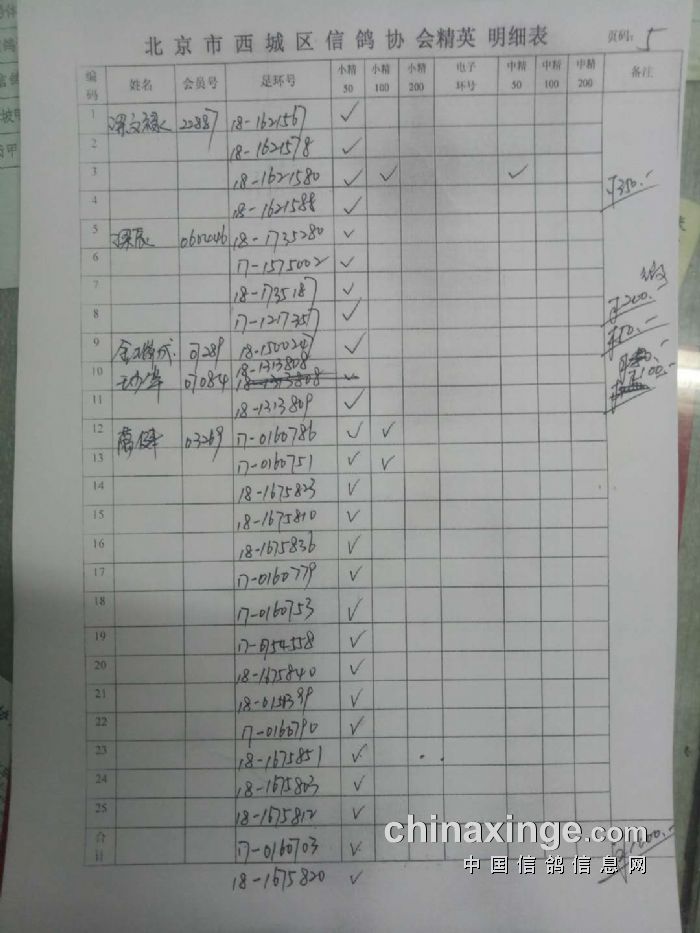 北京市西城区信鸽协会精英 明细表 页码：5
编码 姓名 会员号 足环号 小精50 小精100 小精200 电子环号 中精50 中精100 中精200 备注
1 22887 18-1621567 ✓
2 18-1621578 ✓
3 18-1621580 ✓ ✓ ✓
4 18-1621588 ✓ ¥350.-
5 18-1735280 ✓
6 17-1575002 ✓
7 18-1735187 ✓
8 17-1217357 ✓ ¥200.-
9 07289 18-1500247 ✓ ¥50.-
10 07084 18-1313808 ✓
11 18-1313809 ✓
12 03269 17-0160786 ✓ ✓
13 17-0160751 ✓ ✓
14 18-1675823 ✓
15 18-1675810 ✓
16 18-1675836 ✓
17 17-0160779 ✓
18 17-0160753 ✓
19 ✓
20 18-1675840 ✓
21 ✓
22 17-0160790 ✓
23 18-1675851 ✓
24 18-1675803 ✓
25 18-1675812 ✓
合计 17-0160703 ✓
18-1675820 ✓
chinaxinge.com
中国信鸽信息网